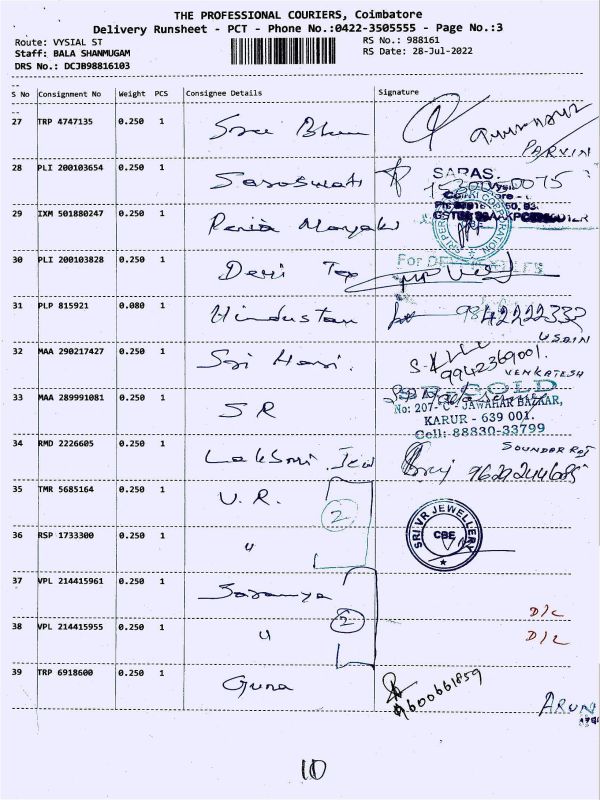 THE PROFESSIONAL COURIERS, Coimbatore
Delivery Runsheet - PCT - Phone No.:0422-3505555 - Page No.:3
Route: VYSIAL ST
RS No.: 988161
Staff: BALA SHANMUGAM
RS Date: 28-Jul-2022
DRS No.: DCJB98816103
S No Consignment No Weight PCS Consignee Details Signature
27 TRP 4747135 0.250 1
PARVIN
28 PLI 200103654 0.250 1 Saraswati
SARAS.
29 IXM 501880247 0.250 1
30 PLI 200103828 0.250 1 Devi Tex
For
31 PLP 815921 0.080 1 Hindustan 9842222332
USAIN
32 MAA 290217427 0.250 1 Sri Hari. 9942369001.
VENKATESH
33 MAA 289991081 0.250 1 SR
GOLD
No: 207-C - JAWAHAR BAZAAR,
KARUR - 639 001.
Cell: 88830-33799
34 RMD 2226605 0.250 1 Lakshmi Jew
SOUNDAR RAJ
35 TMR 5685164 0.250 1 V.R. 2
SRI VR JEWELLERY
CBE
36 RSP 1733300 0.250 1 "
37 VPL 214415961 0.250 1 Saranya 2 D/L
38 VPL 214415955 0.250 1 " D/L
39 TRP 6918600 0.250 1 Guna 9600661859
ARUN
10